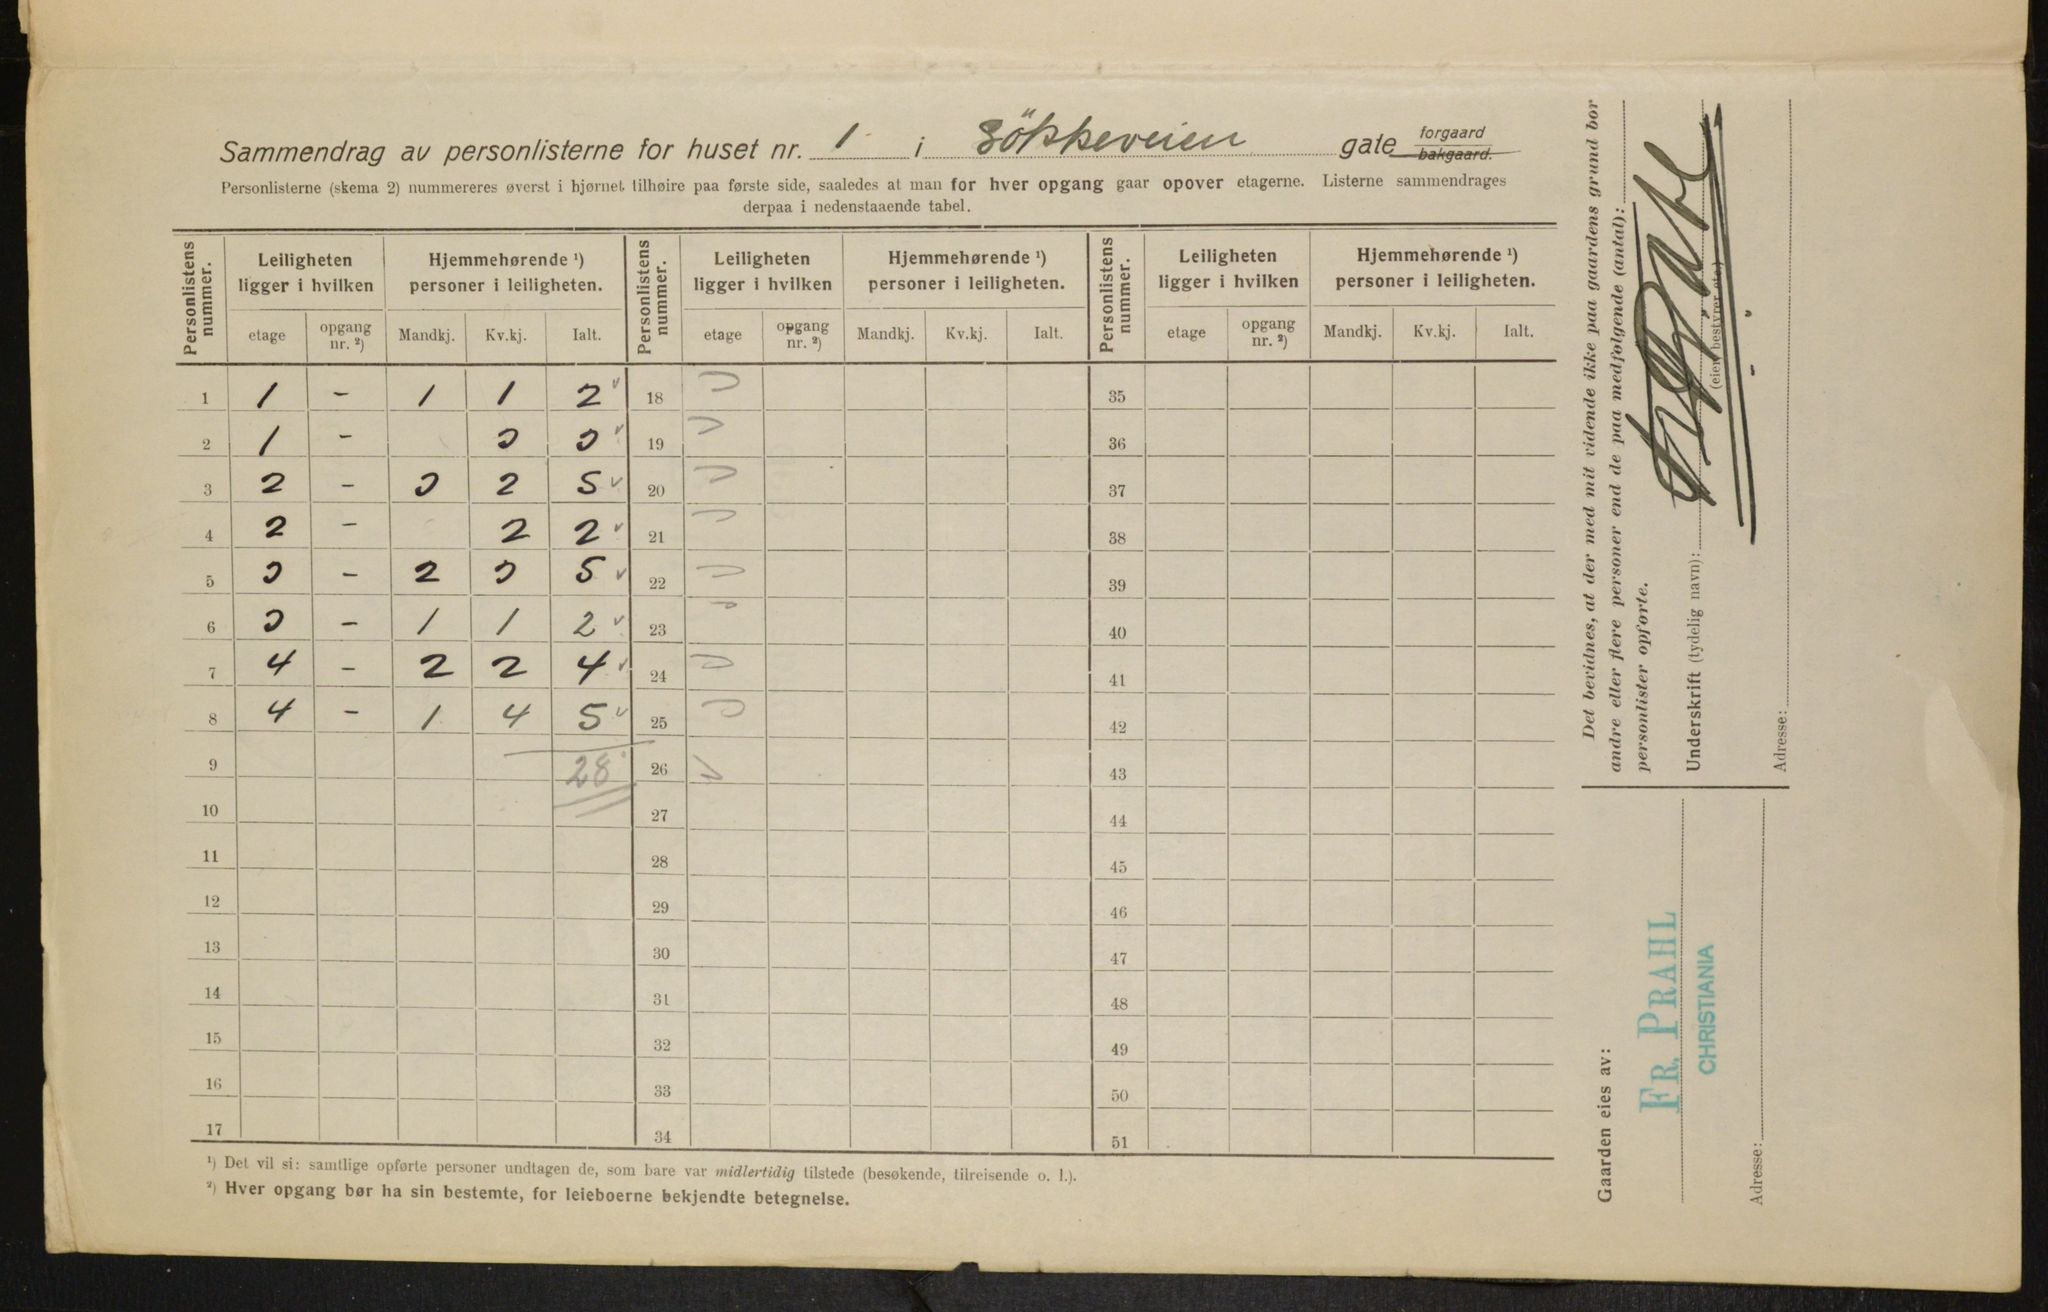 Sammendrag av personlisterne for huset nr. 1 i Sökkeveien gate forgaard bakgaard.
Personlisterne (skema 2) nummereres øverst i hjørnet tilhøire paa første side, saaledes at man for hver opgang gaar opover etagerne. Listerne sammendrages
derpaa i nedenstaaende tabel.
Personlistens nummer. Leiligheten ligger i hvilken Hjemmehørende ¹) personer i leiligheten. Personlistens nummer. Leiligheten ligger i hvilken Hjemmehørende ¹) personer i leiligheten. Personlistens nummer. Leiligheten ligger i hvilken Hjemmehørende ¹) personer i leiligheten.
etage opgang nr. ²) Mandkj. Kv.kj. Ialt. etage opgang nr. ²) Mandkj. Kv.kj. Ialt. etage opgang nr. ²) Mandkj. Kv.kj. Ialt.
1 1 – 1 1 2 18 35
2 1 – 3 3 19 36
3 2 – 3 2 5 20 37
4 2 – 2 2 21 38
5 3 – 2 3 5 22 39
6 3 – 1 1 2 23 40
7 4 – 2 2 4 24 41
8 4 – 1 4 5 25 42
9 28 26 43
10 27 44
11 28 45
12 29 46
13 30 47
14 31 48
15 32 49
16 33 50
17 34 51
¹) Det vil si: samtlige opførte personer undtagen de, som bare var midlertidig tilstede (besøkende, tilreisende o. l.).
²) Hver opgang bør ha sin bestemte, for leieboerne bekjendte betegnelse.
Det bevidnes, at der med mit vidende ikke paa gaardens grund bor
andre eller flere personer end de paa medfølgende (antal):
personlister opførte.
Underskrift (tydelig navn):
(eier, bestyrer etc.)
Adresse:
Gaarden eies av:
FR. PRAHL
CHRISTIANIA
Adresse: